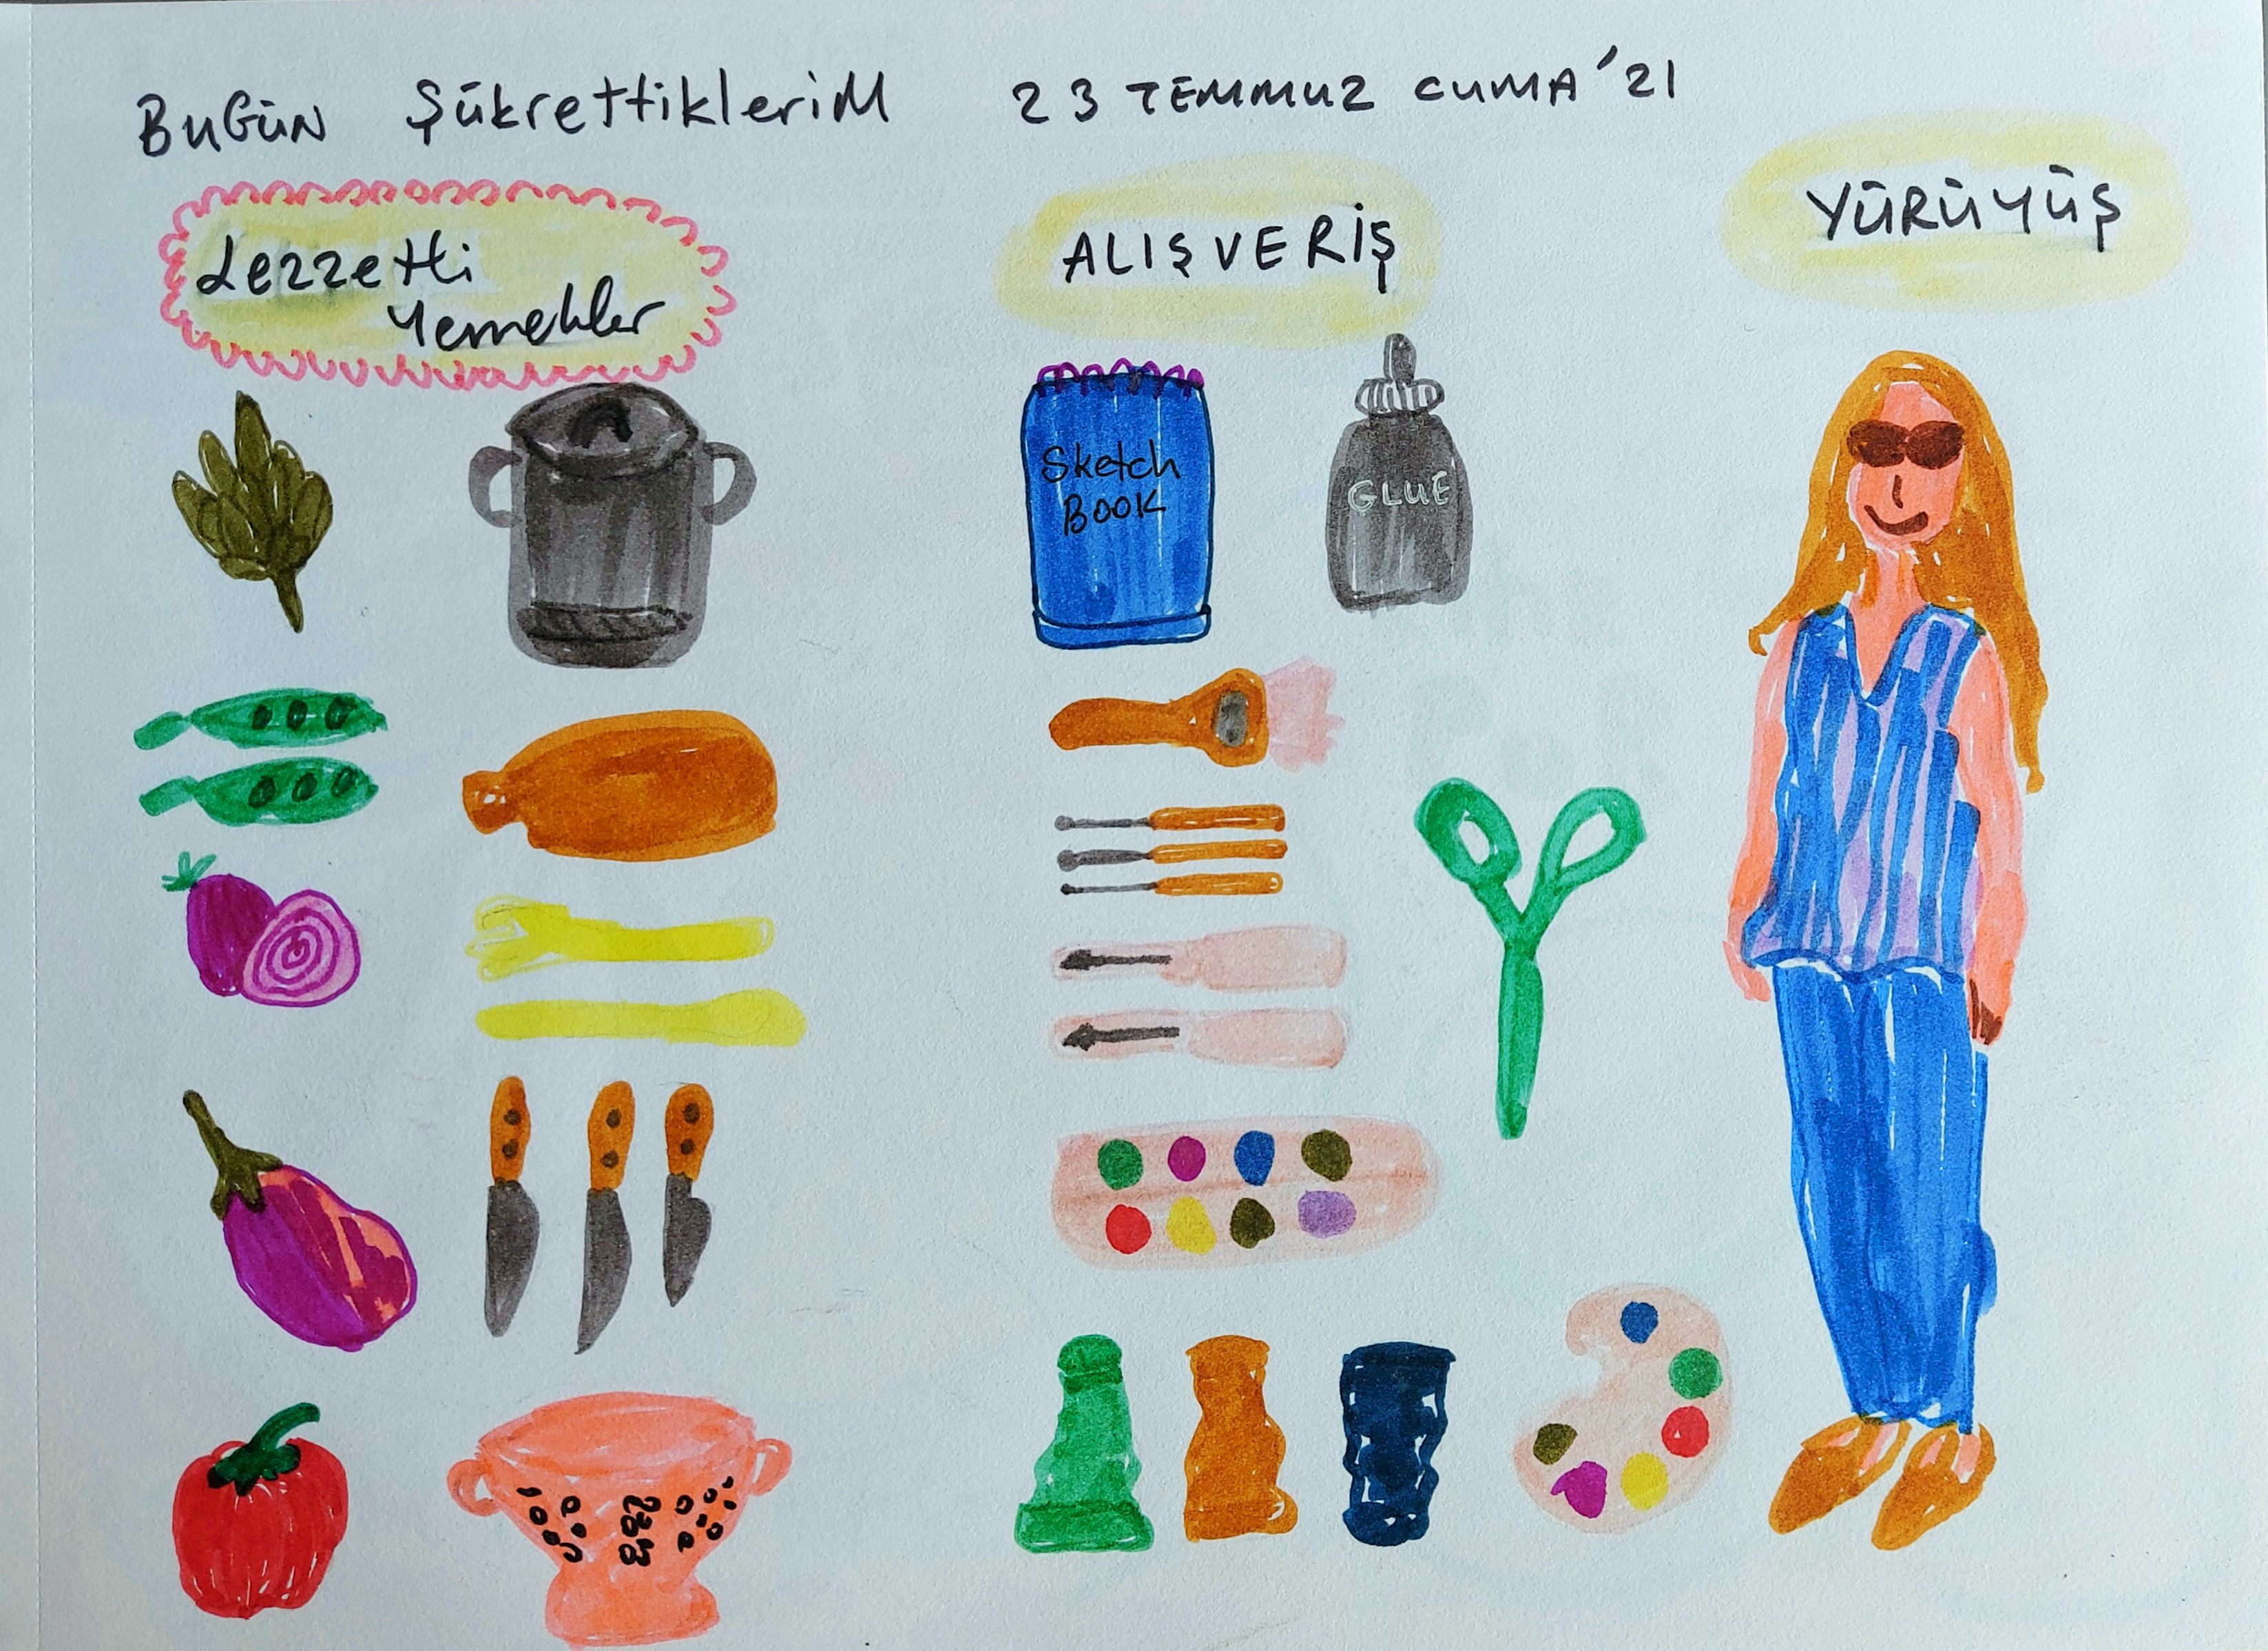 BUGÜN ŞÜKrettiklerim 23 TEMMUZ CUMA '21
Lezzetli
Yemekler
ALIŞVERİŞ
YÜRÜYÜŞ
Sketch
BOOK
GLUE